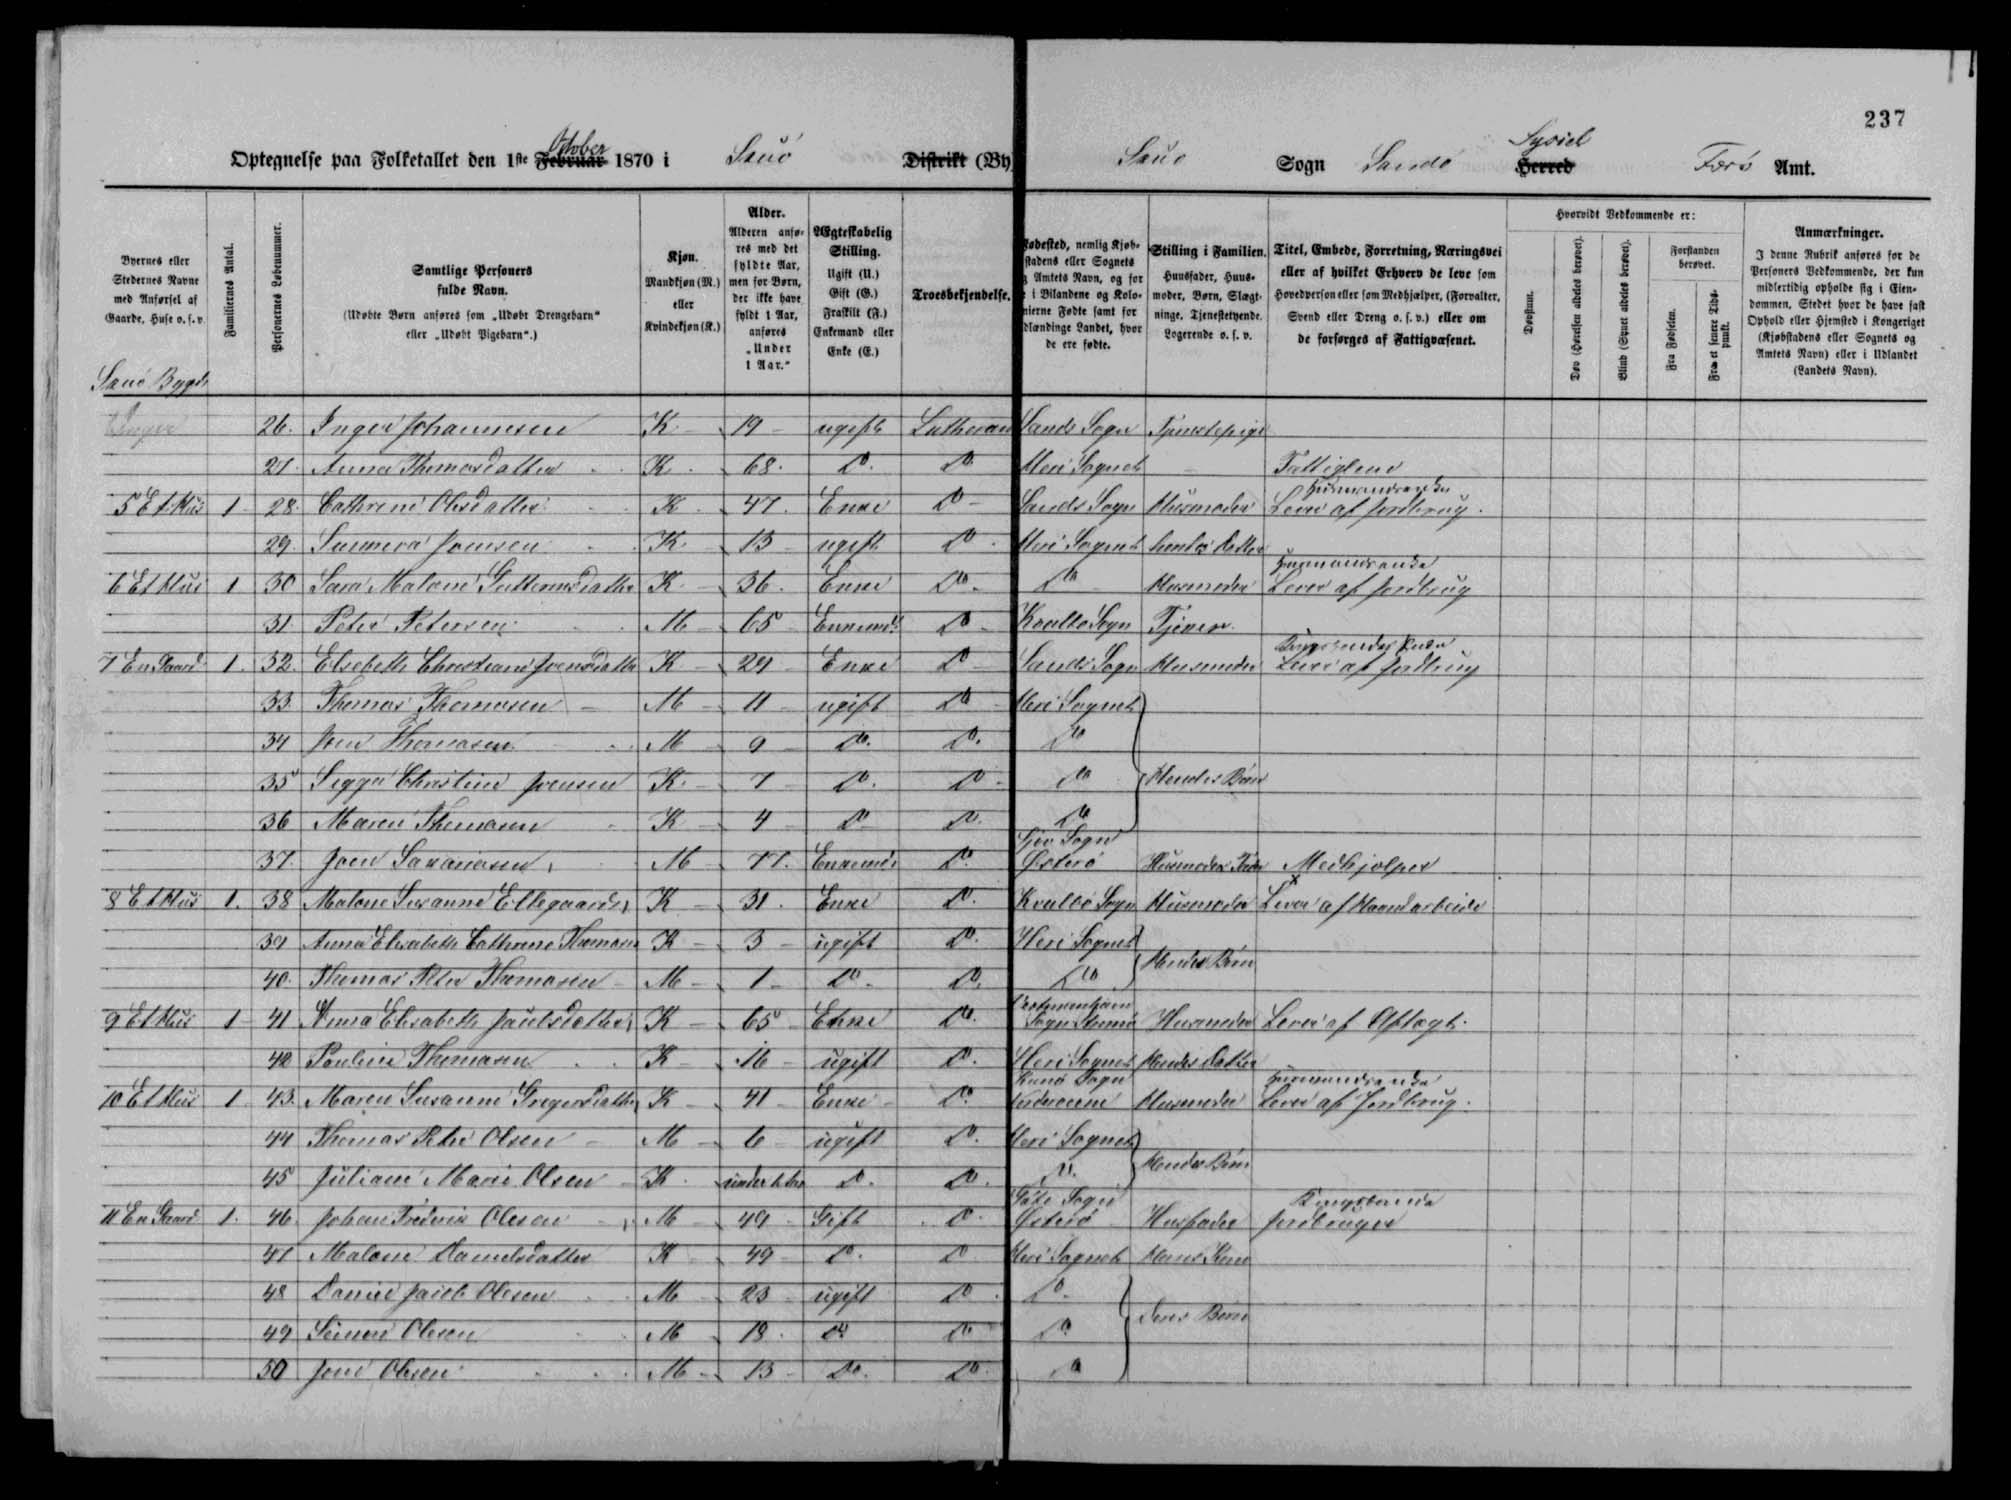 237
Optegnelse paa Folketallet den 1ste Februar October 1870 i Skuö Distrikt (By Skuö Sogn Sandö Herred Syssel Færö Amt.
Byernes eller Stedernes Navne med Anførsel af Gaarde, Huse o. s. v.
Familiernes Antal.
Personernes Løbenummer.
Samtlige Personers fulde Navn.
(Udøbte Børn anføres som „Udøbt Drengebarn“ eller „Udøbt Pigebarn“.)
Kjøn.
Mandkjøn (M.) eller Kvindekjøn (K.)
Alder.
Alderen anføres med det fyldte Aar, men for Børn, der ikke have fyldt 1 Aar, anføres „Under 1 Aar.“
Ægteskabelig Stilling.
Ugift (U.) Gift (G.) Fraskilt (F.) Enkemand eller Enke (E.)
Troesbekjendelse.
Fødested, nemlig Kjøbstadens eller Sognets og Amtets Navn, og for de i Bilandene og Kolonierne Fødte samt for Udlændinge Landet, hvor de ere fødte.
Stilling i Familien.
Huusfader, Huusmoder, Børn, Slægtninge, Tjenestetyende, Logerende o. s. v.
Titel, Embede, Forretning, Næringsvei eller af hvilket Erhverv de leve som Hovedperson eller som Medhjælper, (Forvalter, Svend eller Dreng o. s. v.) eller om de forsørges af Fattigvæsenet.
Hvorvidt Vedkommende er:
Døvstum.
Døv (Hørelsen aldeles berøvet).
Blind (Synet aldeles berøvet).
Forstanden berøvet.
Fra Fødselen.
Fra et senere Tidspunkt.
Anmærkninger.
I denne Rubrik anføres for de Personers Vedkommende, der kun midlertidig opholde sig i Eiendommen, Stedet hvor de have fast Ophold eller Hjemsted i Kongeriget (Kjøbstadens eller Sognets og Amtets Navn) eller i Udlandet (Landets Navn).
Skuö Bygd
26. Inger Johannesen K 19 ugift Lutheran Sands Sogn Tjenestepige
27. Anna Thomasdatter K 68. Do. Do. Heri Sognet Fattiglem
5 Et Hus 1 28. Cathrine Olesdatter K 47. Enke Do Sands Sogn Husmoder Husmandsenke Lever af Jordbrug.
29. Sunneva Joensen K 13 ugift Do Heri Sognet hendes Datter
6 Et Hus 1 30 Sara Malone Guttormsdatter K 36. Enke Do. Do Husmoder Husmandsenke Lever af Jordbrug
31 Peter Petersen M 65 Enkemd. Do Kvalbö Sogn Tjener
7 En Gaard 1. 32. Elsebeth Christiane Joensdatter K 29 Enke Do Sands Sogn Husmoder Kongsbondes Enke Lever af Jordbrug
33. Thomas Thomasen M 11 ugift Do Heri Sognet
34 Joen Thomasen M 9 Do. Do. Do
35 Sigga Christine Joensen K 7 Do. Do Do Hendes Börn
36 Maren Thomasen K 4 Do Do. Do
37. Joen Sakariasen M 77. Enkemd. Do. Gjov Sogn Österö Husmoders Fader Medhjælper
8 Et Hus 1. 38 Malene Susanne Ellegaards K 31. Enke Do. Kvalbö Sogn Husmoder Lever af Haandarbeide
39 Anna Elisabeth Cathrine Thomasen K 3 ugift Do. Heri Sognet
40. Thomas Peter Thomasen M 1 Do. Do. Do Hendes Börn
9 Et Hus 1 41 Anna Elisabeth Joensdatter K 65 Enke Do. Sogn Strömö Husmoder Lever af Aftægt.
42 Pouline Thomasen K 16 ugift Do. Heri Sognet Hendes Datter
10 Et Hus 1 43. Maren Susanne Gregersdatter K 41 Enke Do. Kunö Sogn Norderöerne Husmoder Husmandsenke Lever af Jordbrug.
44 Thomas Peter Olsen M 6 ugift Do. Heri Sognet
45 Juliane Marie Olsen K under 1 Aar Do. Do. Do. Hendes Börn
11 En Gaard 1. 46. Johan Frederik Olesen M 49 Gift Do. Göte Sogn Österö Husfader Kongsbonde Jordbruger
47 Malene Danielsdatter K 49 Do. Do Heri Sognet Hans Kone
48 Daniel Jacob Olesen M 23 ugift Do Do.
49 Simon Olesen M 18. Do Do Do. Deres Börn
50 Jone Olesen M 13 Do. Do. Do